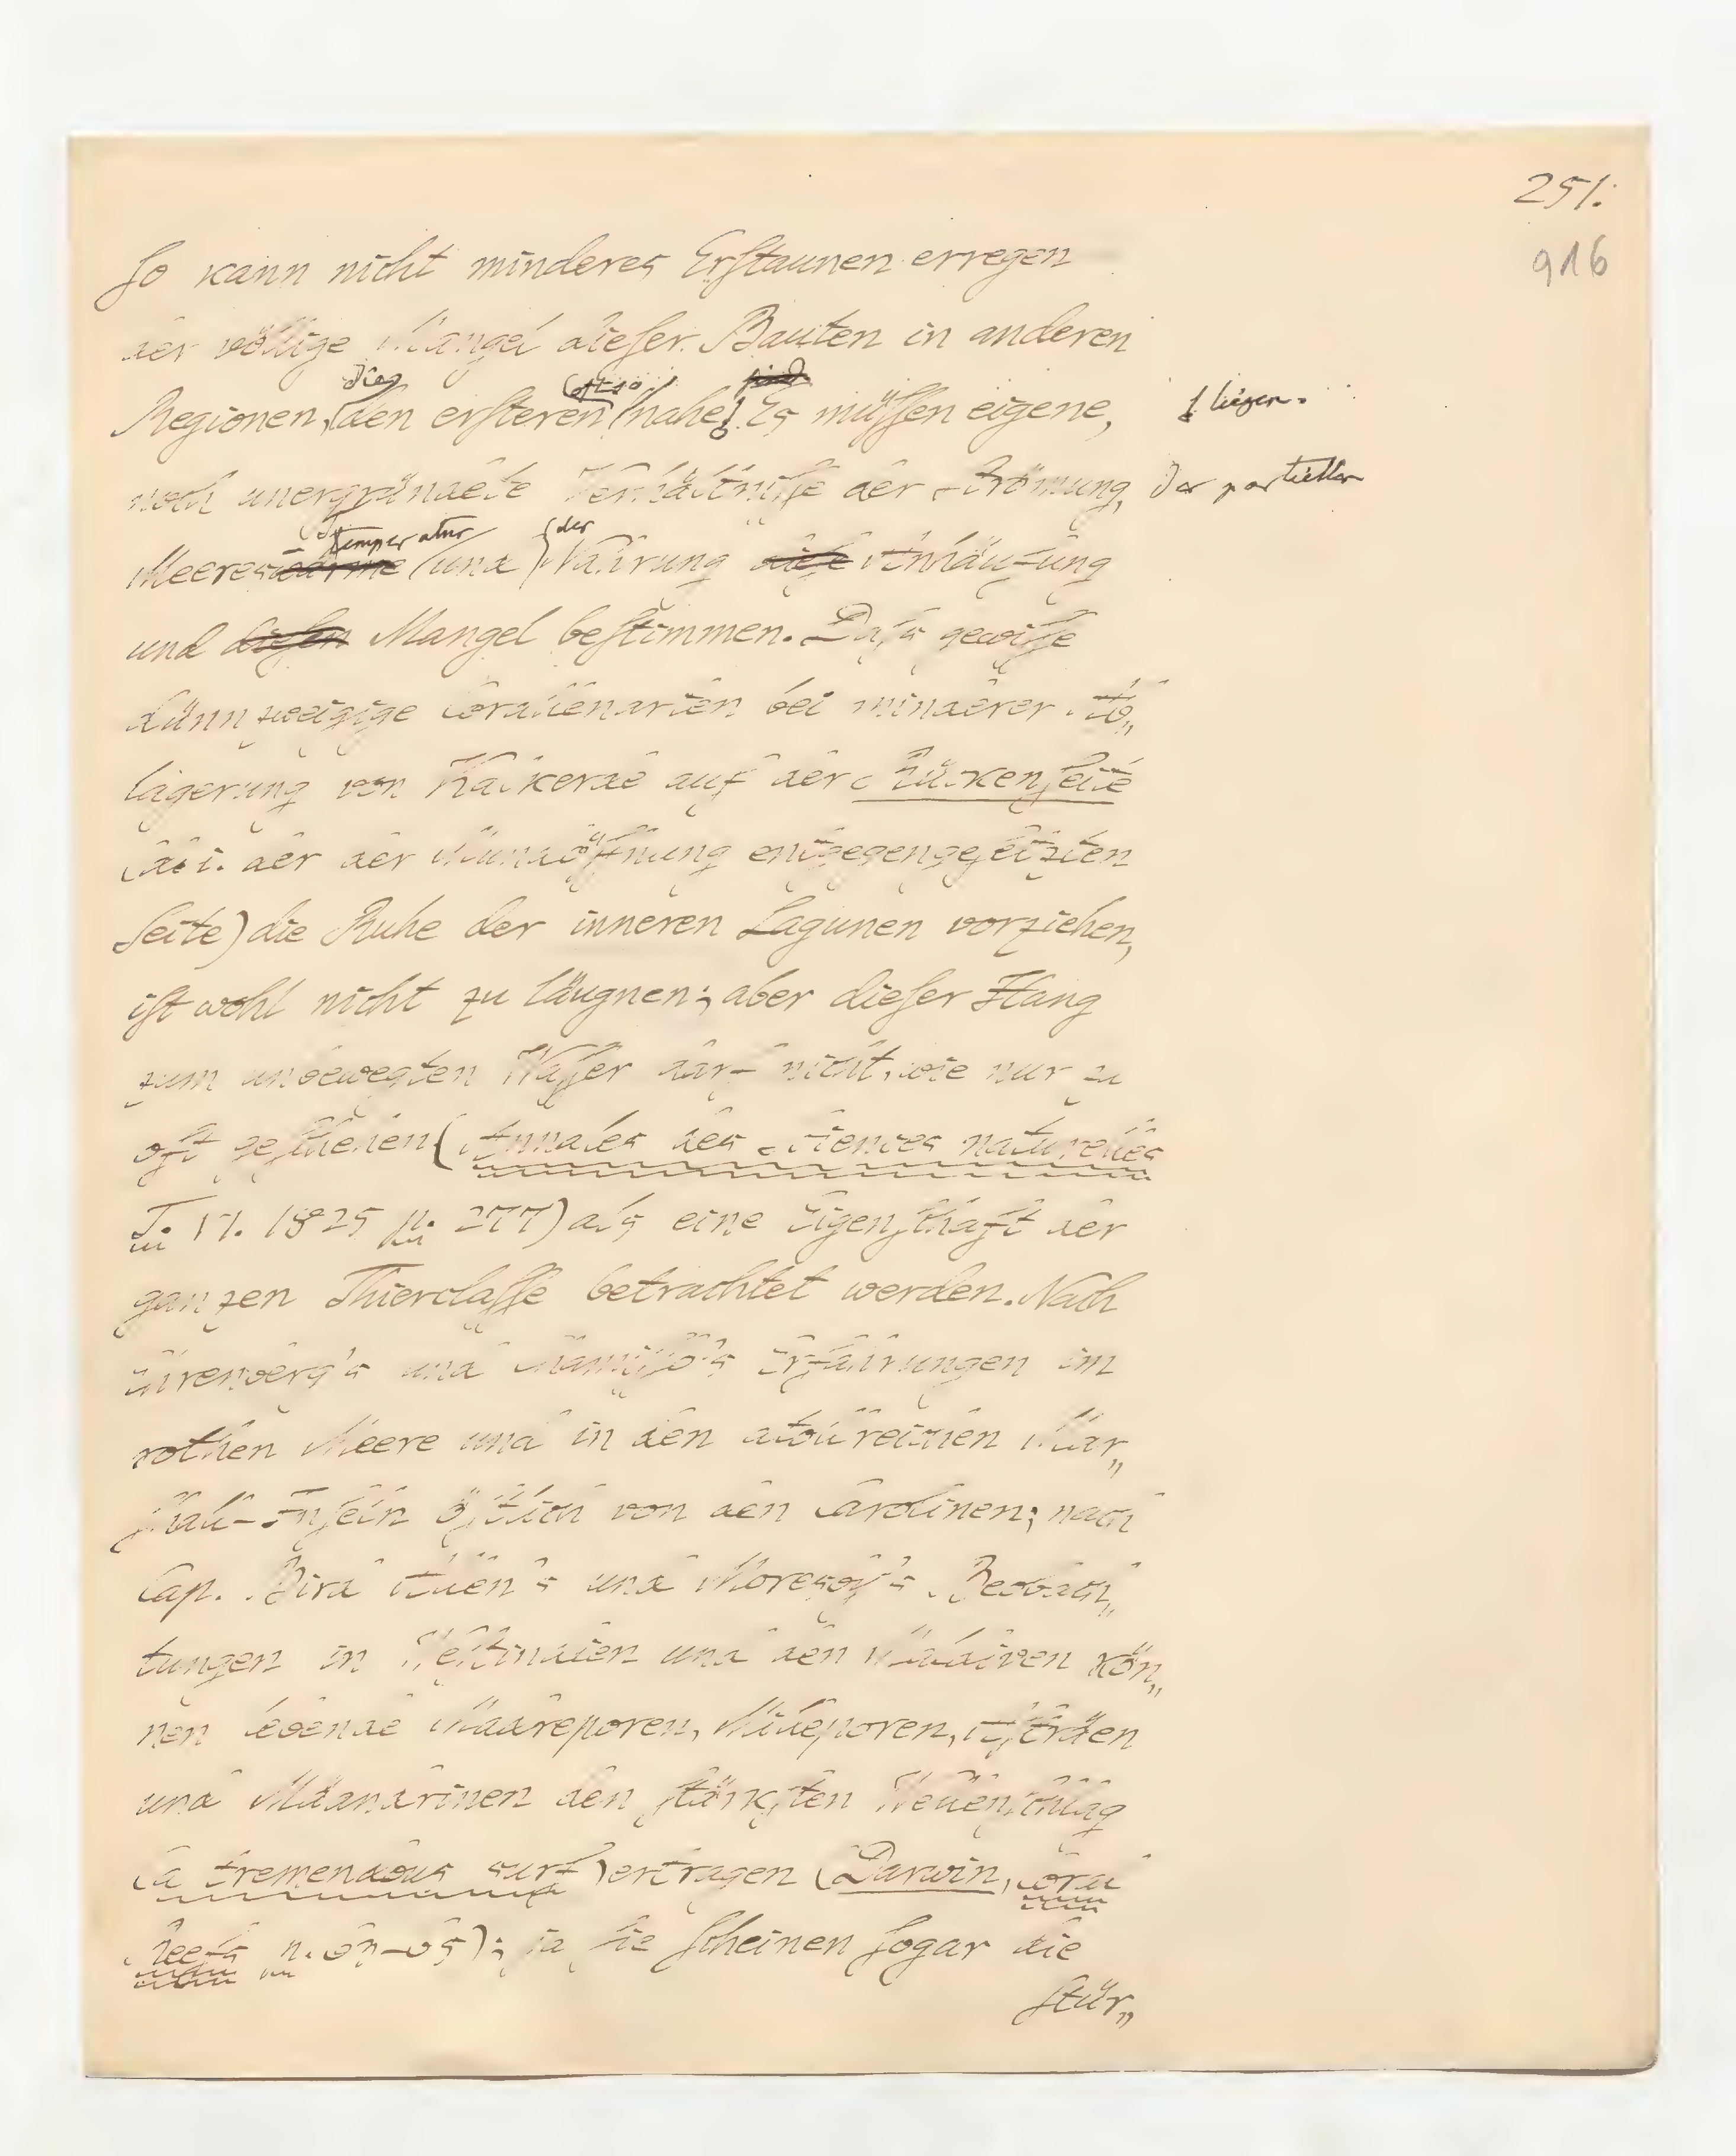 251.
916
so kann nicht minderes Erstaunen erregen
der völlige Mangel dieser Bauten in anderen
die
Regionen, den ersteren nahe. Es müssen eigene,
liegen.
noch unergründete Verhältnisse der Strömung,
der partiellen
Temperatur
der
Meereswärme und Nahrung diese Anhäufung
und diesen Mangel bestimmen. Daß gewisse
dünnzweigige Corallenarten bei minderer Ab„
lagerung von Kalkerde auf der Rückenseite
(d. i. der der Mundöffnung entgegengesetzten
Seite) die Ruhe der inneren Lagunen vorziehen,
ist wohl nicht zu läugnen; aber dieser Hang
zum unbewegten Wasser darf nicht, wie nur zu
oft geschehen (Annales des Sciences naturelles
T. VI. 1825 p. 277) als eine Eigenschaft der
ganzen Thierclasse betrachtet werden. Nach
Ehrenberg's und Chamisso's Erfahrungen im
rothen Meere und in den atollreichen Mar„
shall-Inseln östlich von den Carolinen; nach
Cap. Bird Allen's und Moresby's Beobach„
tungen in Westindien und den Maldiven kön„
nen lebende Madreporen, Milleporen, Asträen
und Mäandrinen den stärksten Wellenschlag
(a tremendous surf) ertragen (Darwin, Coral
Reefs p. 63–65); ja sie scheinen sogar die
stür„